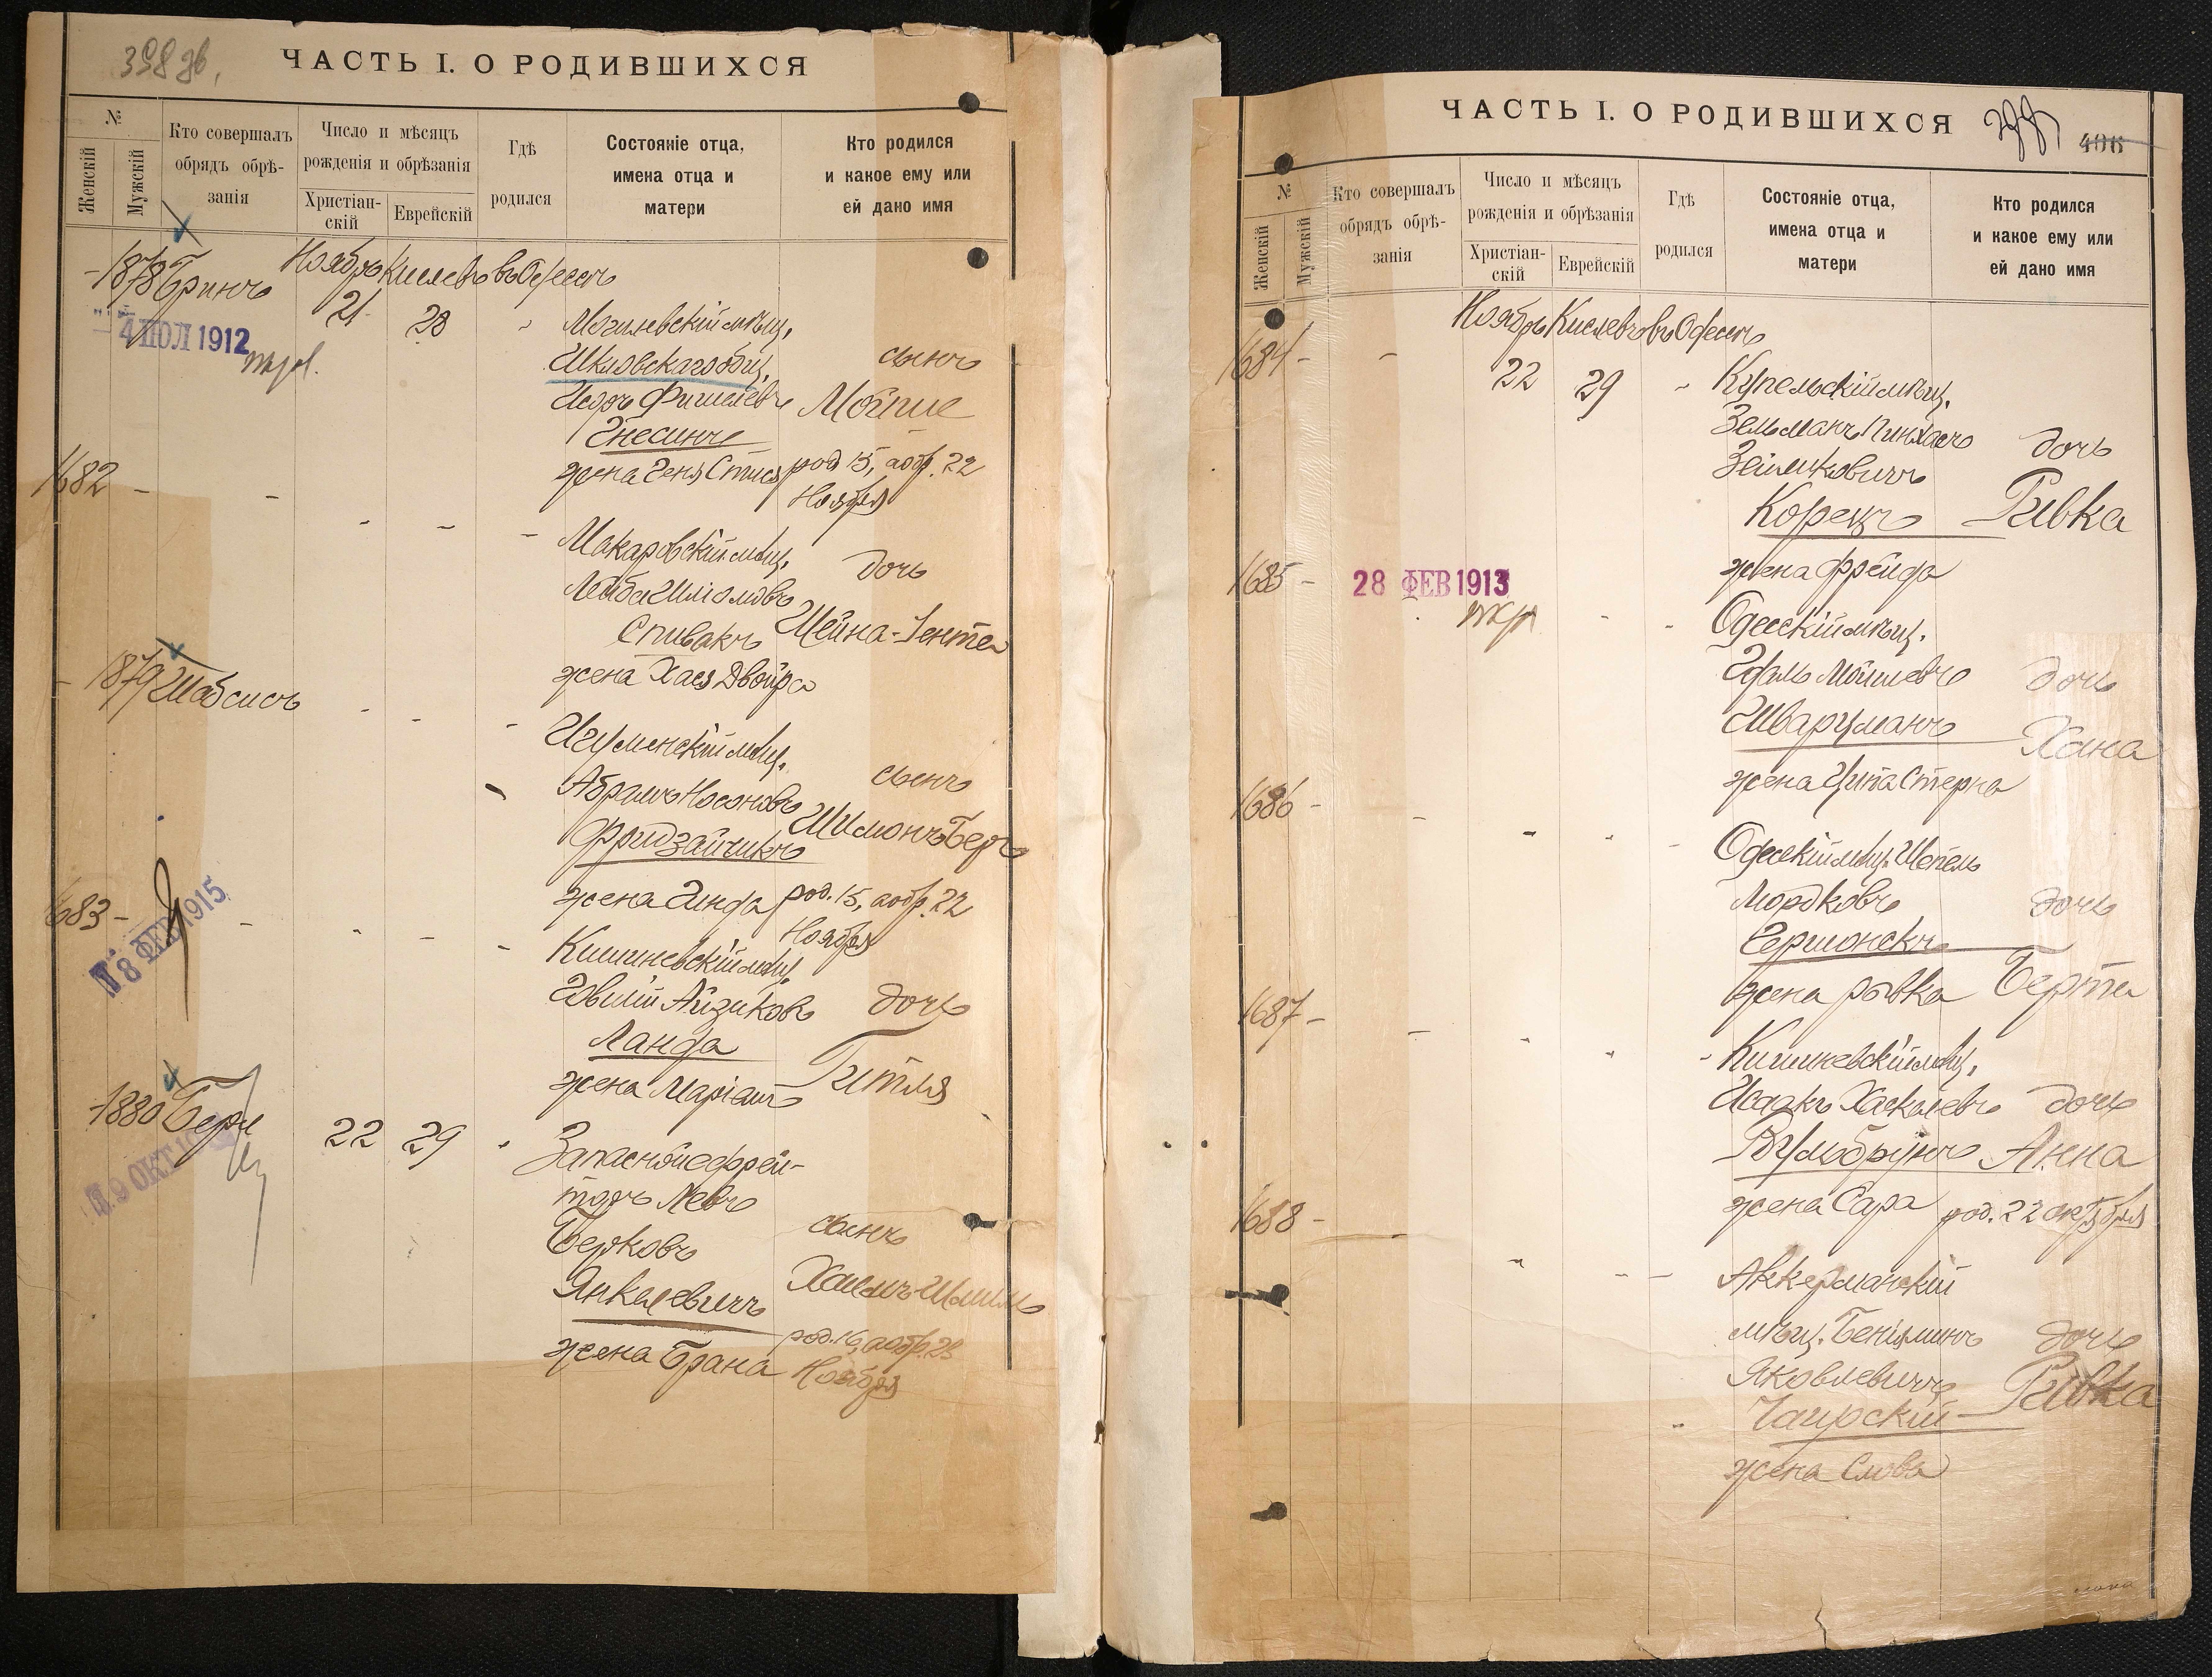 398 об.
ЧАСТЬ I. О РОДИВШИХСЯ
№
Женскій
Мужскій
Кто совершалъ
обрядъ обрѣ-
занія
Число и мѣсяцъ
рожденія и обрѣзанія
Христіан-
скій
Еврейскій
Гдѣ
родился
Состояніе отца,
имена отца и
матери
Кто родился
и какое ему или
ей дано имя
- 1878 Гринъ
Ноябрь Кислевъ въ Одессѣ
21 28 -
4 ІЮЛ 1912
Могилевскій мѣщ.
Шкловскаго общ.
сынъ
Исаръ Фишелевъ
Мойше
Гнесинъ
жена Геня Стися
род. 15, а обр. 22
Ноября
1682 - - - - -
Макаровскій мѣщ.
дочь
Лейба Шліомовъ
Спивакъ
Шейна-Іента
жена Хася Двойра
- 1879 Шабсисъ - - -
Игуменскій мѣщ.
сынъ
Абрамъ Носоновъ
Шимонъ Беръ
Фридзайчикъ
жена Гинда
род. 15, а обр. 22
Ноября
1683 - - - - -
8 ФЕВ 1915
Кишиневскій мѣщ.
Айзиковъ
дочь
Ланда
Гитля
жена Маріамъ
- 1880 Берл
22 29 -
9 ОКТ
Запасной ефрей-
торъ Левъ
Берковъ
сынъ
Янкелевичъ
Хаимъ-Шмиль
жена Брана
род. 16, а обр. 23
Ноября
ЧАСТЬ I. О РОДИВШИХСЯ
406
№
Женскій
Мужскій
Кто совершалъ
обрядъ обрѣ-
занія
Число и мѣсяцъ
рожденія и обрѣзанія
Христіан-
скій
Еврейскій
Гдѣ
родился
Состояніе отца,
имена отца и
матери
Кто родился
и какое ему или
ей дано имя
Ноябрь Кислевъ въ Одессѣ
1684 - -
22 29 -
Купельскій мѣщ.
Зельманъ Пинхасъ
дочь
Зейликовичъ
Корецъ
Ривка
жена Фрейда
1685 -
28 ФЕВ 1913
- -
Одесскій мѣщ.
Мошковъ
дочь
Шварцманъ
Хана
жена Ципа Стерна
1686 - - - - -
Одесскій мѣщ. Шепсель
Мордковъ
дочь
Гершонскъ
Берта
жена Рывка
1687 - - - - -
Кишиневскій мѣщ.
Исаакъ Хаскелевъ
дочь
Анна
жена Сара
род. 22 октября
1688 - - - -
Аккерманскій
мѣщ. Беніяминъ
дочь
Яковлевичъ
Ривка
Чаирскій
жена Слова